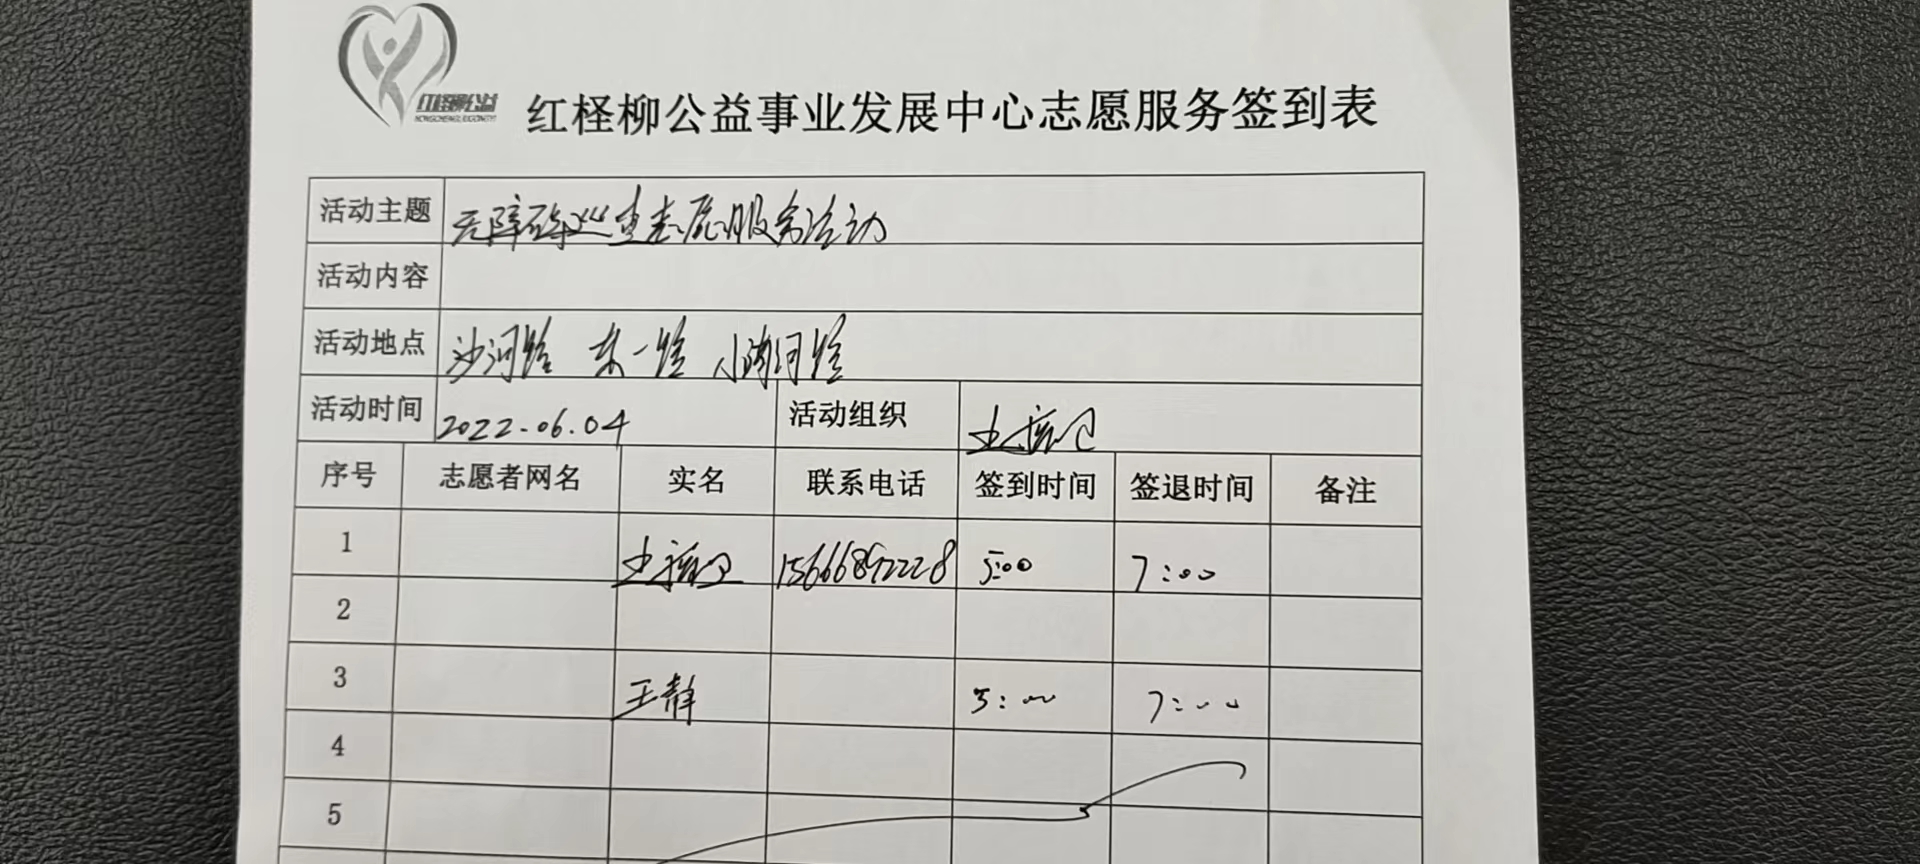 红柽柳公益
HONGCHENGLIUGONGYI
红柽柳公益事业发展中心志愿服务签到表
活动主题 无障碍巡查志愿服务活动
活动内容
活动地点 沙河路 东一路 小清河路
活动时间 2022.06.04 活动组织
序号 志愿者网名 实名 联系电话 签到时间 签退时间 备注
1 15666892228 5:00 7:00
2
3 王静 5:00 7:00
4
5